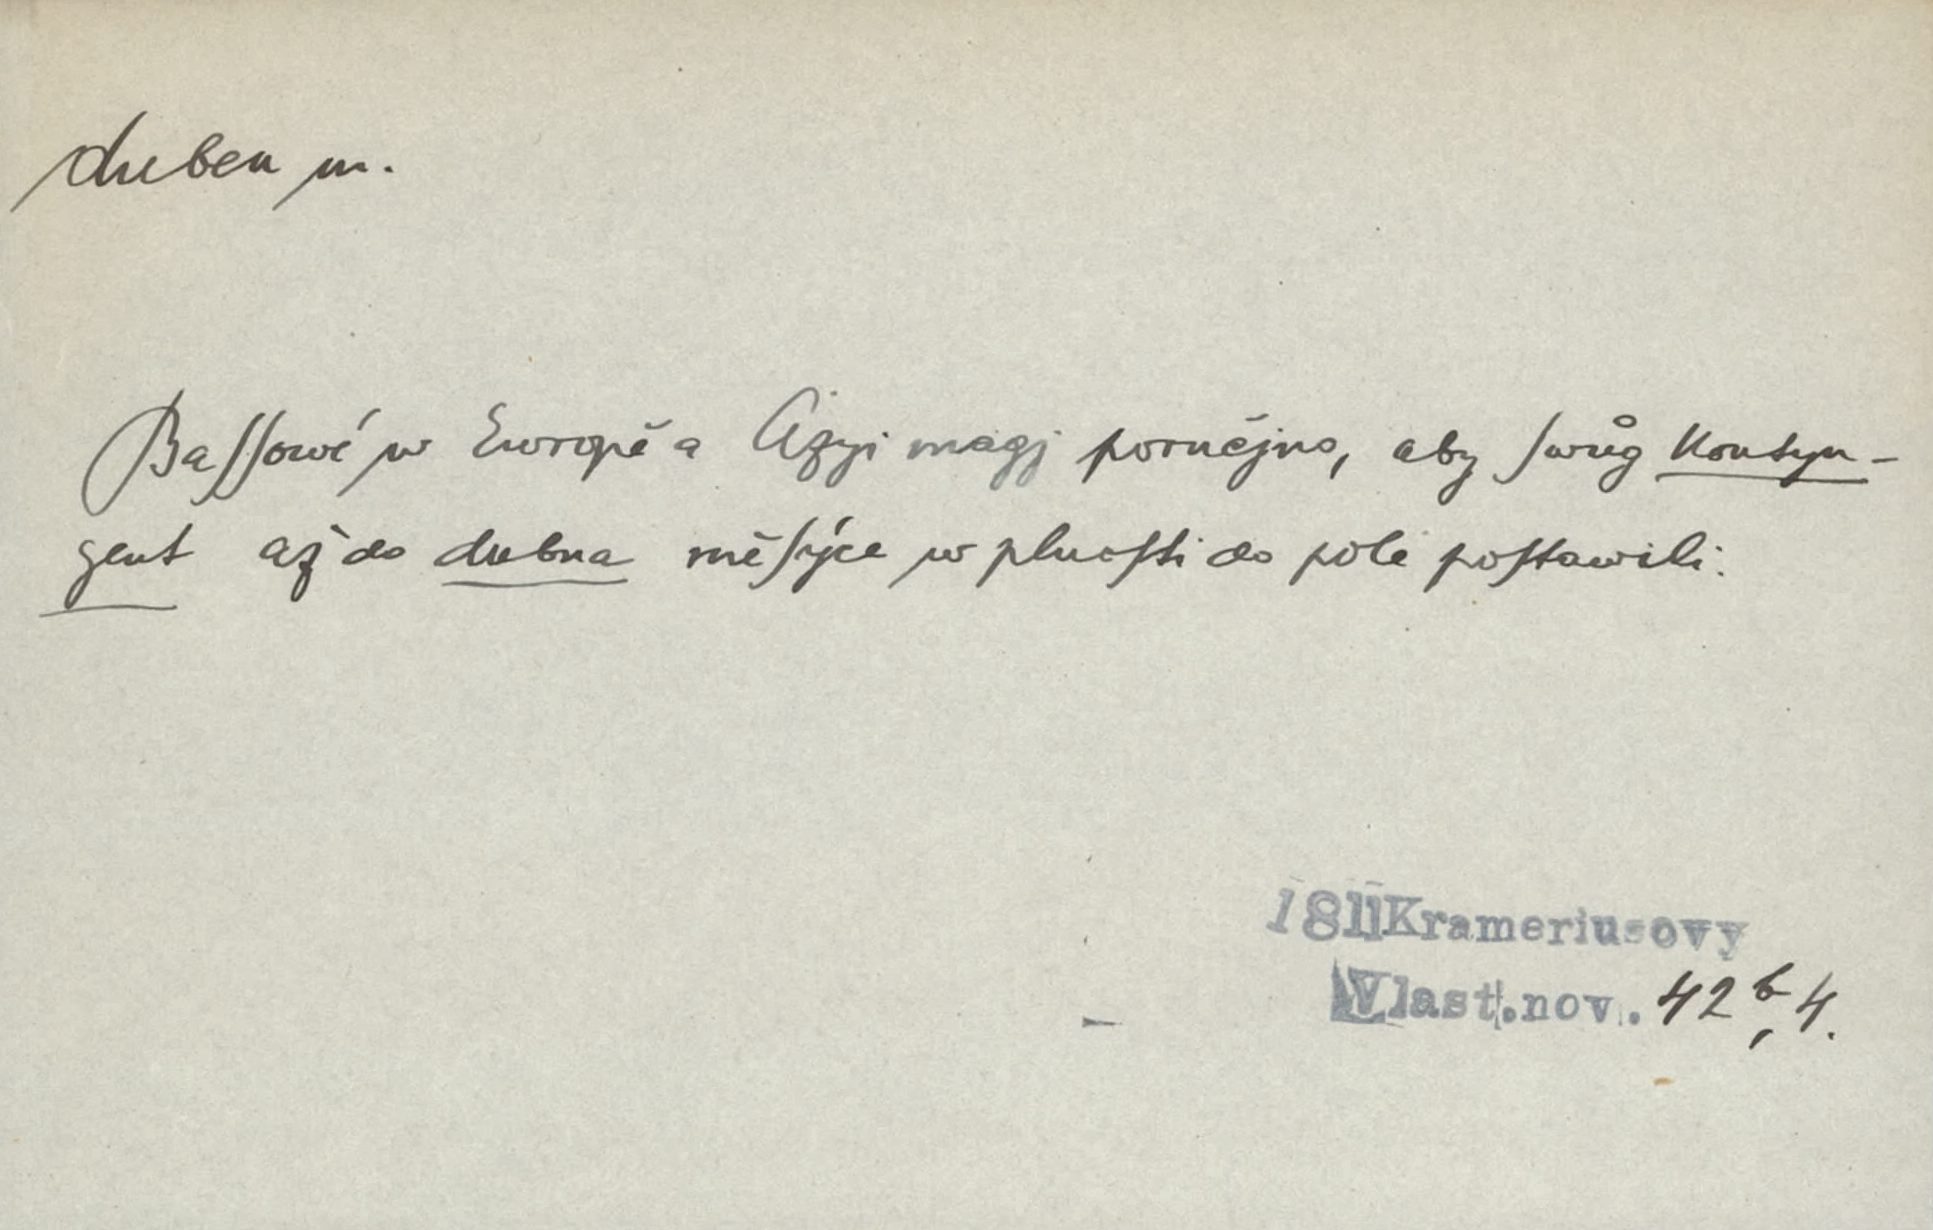 duben m.
Baſſowé w Ewropě a Azyi magj poručjno, aby ſwůg Kontyn-
gent až do dubna měſýce w plnoſti do pole poſtawili.
1811 Krameriusovy
Vlast. nov. 42 b, 4.